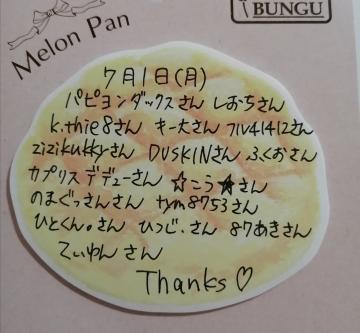 Melon Pan
BUNGU
7月1日(月)
パピヨンダックスさん しおちさん
k.thie8さん キー大さん フルV41412さん
zizikukkyさん DUSKINさん ふくおさん
カプリスデデューさん ☆こう★さん
のまぐっさんさん tym8753さん
ひとくん。さん ひつじ.さん 87あきさん
てぃわんさん
Thanks♡